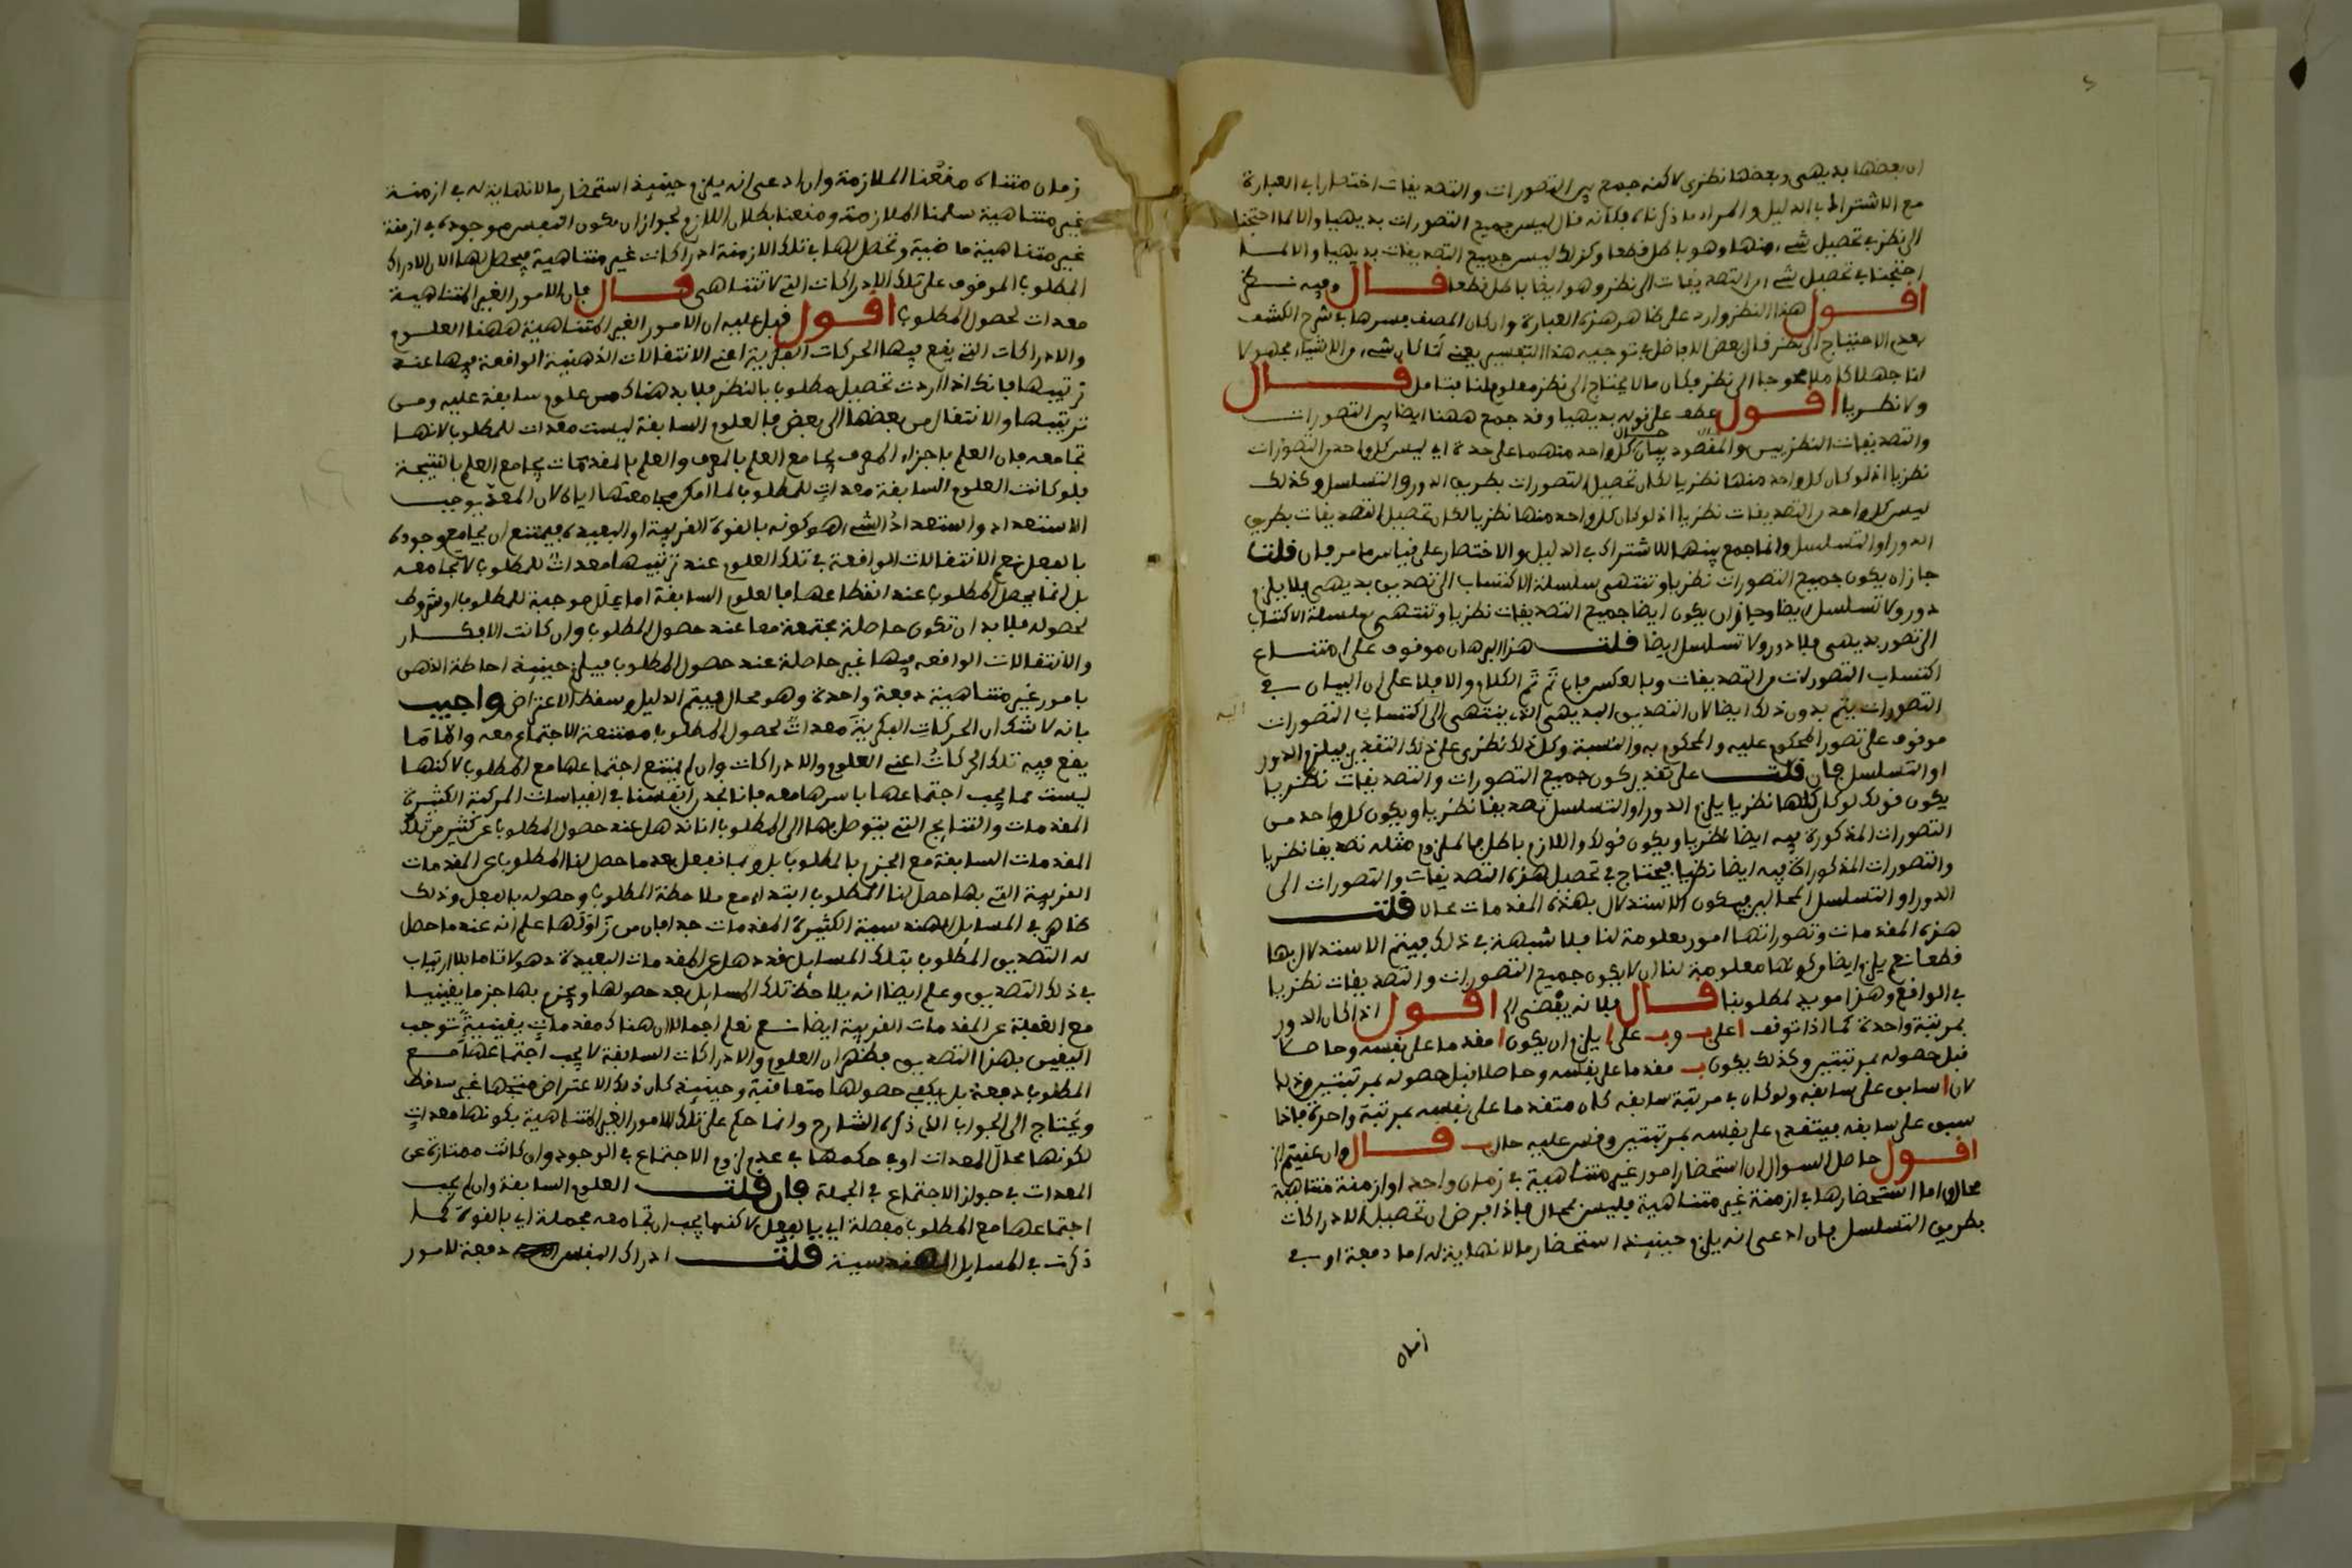 ان بعضها بديهى وبعضها نظرى لاكنه جمع بين التصورات والتصديفات اختصارا فى العبارة
مع الاشتراك فى الدليل والمراد ما ذكرناه فكانه فال ليس جميع التصورات بديهيا والا لما احتجنا
الى نظر فى تحصيل شىء منها وهو باطل فطعا وكذلك ليس جميع التصديفات بديهيا والا لمـا
احتجنا فى تحصيل شىء من التصديفات الى نظر وهو ايضا باطل فطعا فـال وفيه نـظر
افـول هذا النظر وارد على ظاهر هذه العبارة وان كان المصنف فسرها فى شرح الكشف
بعدم الاحتياج الى نظر فال بعض الافاضل فى توجيه هذا التفسير يعنى لما كان شىء من الاشياء مجهولا
لنا جهلا محوجا الى نظر فكان مالا يحتاج الى نظر معلوم لنا فتامل فـال
ولا نظـريا افـول عطف على فوله بديهيا وفد جمع ههنا ايضا بين التصورات
والتصديفات النظريين والمفصود بيان حـال كل واحد منهما على حدة اى ليس كل واحد من التصورات
نظريا اذ لو كان كل واحد منها نظريا لكان تحصيل التصورات بطريق الدور او التسلسل وكذلك
ليس كل واحد من التصديفات نظريا اذ لو كان كل واحد منها نظريا لكان تحصيل التصديفات بطريق
الدور او التسلسل وانما جمع بينها للاشتراك فى الدليل والاختصار على فياس ما مر فان فلت
جاز ان يكون جميع التصورات نظريا وتنتهى سلسلة الاكتساب الى تصديق بديهى فلا يلزم
دور ولا تسلسل ايضا وجاز ان يكون ايضا جميع التصديفات نظريا وتنتهى سلسلة الاكتساب
الى تصور بديهى فلا دور ولا تسلسل ايضا فلت هذا البرهان موفوف على امتنـاع
اكتساب التصورات من التصديفات وبالعكس فان تم تم الكلام والا فلا على ان البيان فى
التصورات يتم بدون ذلك ايضا لان التصديق البديهى الذى ينتهى اليه اكتساب التصورات
موفوف على تصور المحكوم عليه والمحكوم به والنسبة وكل ذلك نظرى على ذلك التفدير فيلزم الدور
او التسلسل فان فلت على تفدير كون جميع التصورات والتصديفات نظريا
يكون فولك لو كان كلها نظريا يلزم الدور او التسلسل تصديفا نظريا ويكون كل واحد من
التصورات المذكورة فيه ايضا نظريا ويكون فولك واللازم باطل فالملزوم مثله تصديفا نظريا
والتصورات المذكورات فيه ايضا نظريا فيحتاج فى تحصيل هذه التصديفات والتصورات الى
الدور او التسلسل المحالين فيكون الاستدلال بهذه المفدمات محالا فلت
هذه المفدمات وتصوراتها امور معلومة لنا فلا شبهة فى ذلك فيتم الاستدلال بها
فطعا نعم يلزم ايضا من كونها معلومة لنا ان لا يكون جميع التصورات والتصديفات نظريا
فى الوافع وهذا مويد لمطلوبنا فـال فلانه يفضى الى افـول اذا كان الدور
بمرتبة واحدة كما اذا توفف ا على ب و ب على ا يلزم ان يكون ا مفدما على نفسه وحاصلا
فبل حصوله بمرتبتين وكذلك يكون ب مفدما على نفسه وحاصلا فبل حصوله بمرتبتين وذلك
لان ا سابق على سابفه ولو كان فى مرتبة سابفه كان متفدما على نفسه بمرتبة واحدة فاذا
سبق على سابفه فيتفدم على نفسه بمرتبتين وفس عليه حال ب فـال وان عنيتم
افـول حاصل السوال ان استحضار امور غير متناهية فى زمان واحد او ازمنة متناهية
محال واما استحضارها فى ازمنة غير متناهية فليس بمحال فاذا فرض ان تحصيل الادراكات
بطريق التسلسل فان ادعى انه يلزم حينيذ استحضار ما لا نهاية له اما دفعة او فى
زمان
زمان متناه منعنا الملازمة وان ادعى انه يلزم حينيذ استحضار ما لانهاية له فى ازمنـة
غير متناهية سلمنا الملازمة ومنعنا بطلان اللازم لجواز ان يكون النفس موجودة فى ازمنة
غير متناهية ماضية وتحصل لها فى تلك الازمنة ادراكات غير متناهية فيحصل لها الان الادراك
المطلوب الموفوف على تلك الادراكات التى لا تتناهى فـال فان الامور الغير المتناهيـة
معدات لحصول المطلوب افـول فيل عليه ان الامور الغير المتناهية ههنا العلـوم
والادراكات التى يفع فيها الحركات الفكرية اعنى الانتفالات الذهنية الوافعة فيها عند
ترتيبها فانك اذا اردت تحصيل مطلوب بالنظر فلا بد هناك من علوم سابفة عليه ومن
ترتيبها والانتفال من بعضها الى بعض فالعلوم السابفة ليست معدات للمطلوب لانهـا
تجامعه فان العلم باجزاء المعرف يجامع العلم بالمعرف والعلم بالمفدمات يجامع العلم بالنتيجة
فلو كانت العلوم السابفة معدات للمطلوب لما امكن مجامعتها اياه لان المعد يوجب
الاستعداد واستعداد الشىء هو كونه بالفوة الفريبة او البعيدة فيمتنع ان يجامع وجوده
بالفعل نعم الانتفالات الوافعة فى تلك العلوم عند ترتيبها معدات للمطلوب لا تجامعه
بل انما يحصل المطلوب عند انفطاعها فالعلوم السابفة اما علل موجبة للمطلوب او شروط
لحصوله فلا بد ان تكون حاصلة مجتمعة معا عند حصول المطلوب وان كانت الافكـار
والانتفالات الوافعه فيها غير حاصلة عند حصول المطلوب فيلزم حينيذ احاطة الذهن
بامور غير متناهية دفعة واحدة وهو محال فيتم الدليل وسفط الاعتراض واجيب
بانه لا شك ان الحركات الفكرية معدات لحصول المطلوب ممتنعة الاجتماع معه واما ما
يفع فيه تلك الحركات اعنى العلوم والادراكات وان لم يمتنع اجتماعها مع المطلوب لاكنهـا
ليست مما يجب اجتماعها باسرها معه فانا نجد من انفسنا فى الفياسات المركبة الكثيرة
المفدمات والنتايج التى يتوصل بها الى المطلوب انا نذهل عند حصول المطلوب عن كثير من تلك
المفدمات السابفة مع الجزم بالمطلوب بل ربما نغفل بعد ما حصل لنا المطلوب عن المفدمات
الفريبة التى بها حصل لنا المطلوب ابتداء مع ملاحظة المطلوب وحصوله بالفعل وذلك
ظاهر فى المسايل الهندسية الكثيرة المفدمات جدا فان من زاولها علم انه عند ما حصل
له التصديق المطلوب بتلك المسايل فد ذهل عن المفدمات البعيدة ذهولا تاما بلا ارتياب
فى ذلك التصديق وعلم ايضا انه يلاحظ تلك المسايل بعد حصولها ويجزم بها جزما يفينيـا
مع الغفلة عن المفدمات الفريبة ايضا نـعم نعلم اجمالا ان هناك مفدمات يفينية توجب
اليفين بهذا التصديق فظهر ان العلوم والادراكات السابفة لا يجب اجتماعها مـع
المطلوب دفعة بل يكفى حصولها متعافبة وحينيذ كان ذلك الاعتراض متجها غير سافط
ويحتاج الى الجواب الذى ذكره الشارح وانما حكم على تلك الامور الغير المتناهية بكونها معدات
لكونها محال المعدات او فى حكمها فى عدم لزوم الاجتماع فى الوجود وان كانت ممتازة عن
المعدات فى جواز الاجتماع فى الجملة فان فلت العلوم السابفة وان لم يجب
اجتماعها مع المطلوب مفصلة اى بالفعل لاكنها يجب ان تجامعه مجملة اى بالفوة كمـا
ذكرت فى المسايل الهندسية فلت ادراك النفس دفعة لامور